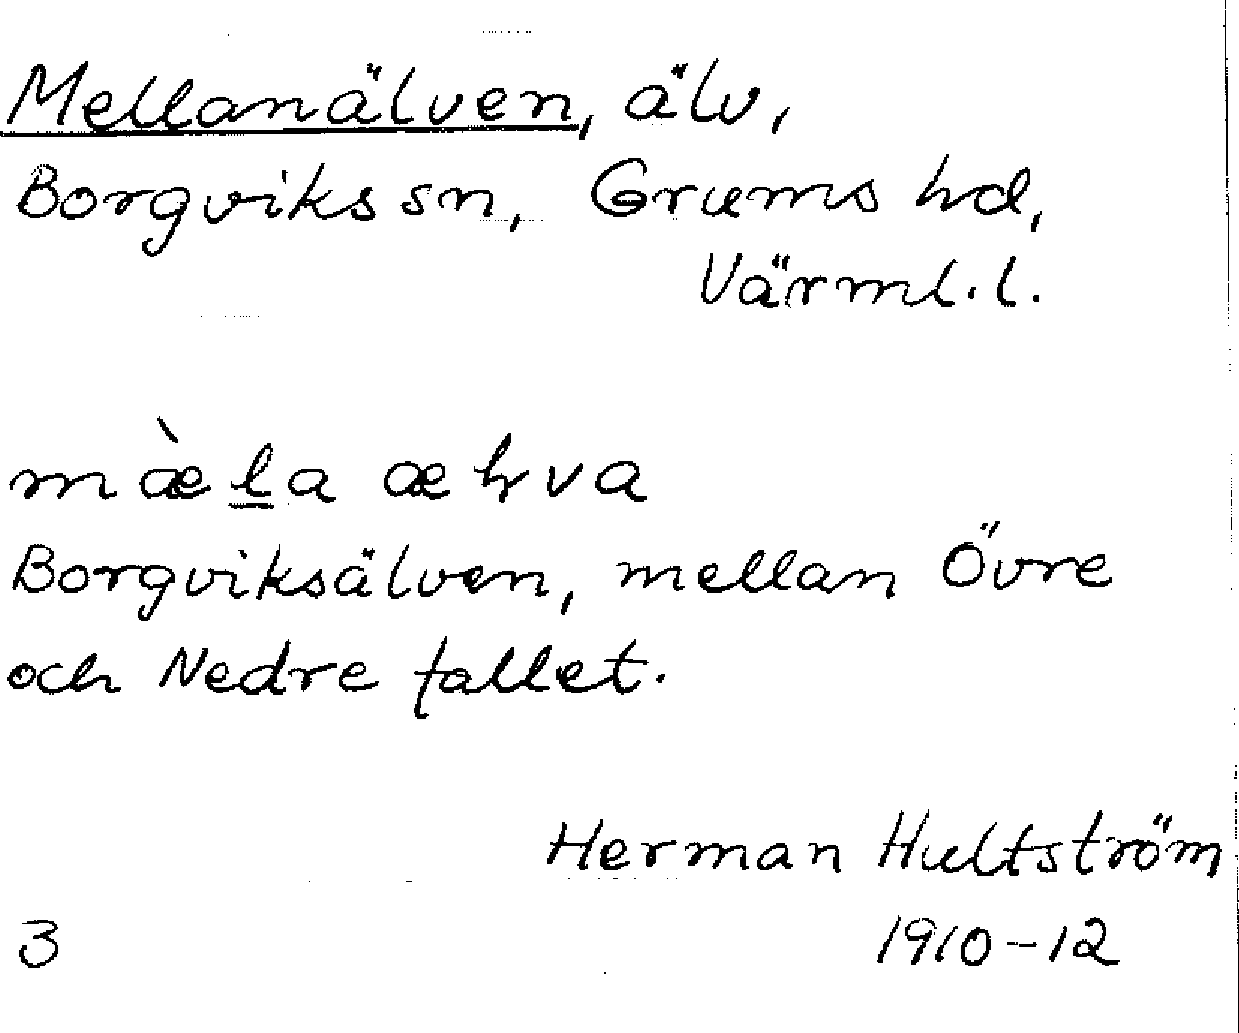 Mellanälven, älv,
Borgviks sn, Grums hd,
Värml. l.
mæ̀l̲a æɽva
Borgviksälven, mellan Övre
och Nedre fallet.
Herman Hultström
3 1910-12